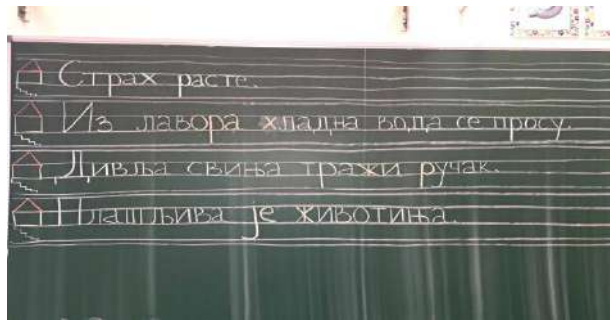 Страх расте.
Из лавора хладна вода се просу.
Дивља свиња тражи ручак.
Плашљива је животиња.